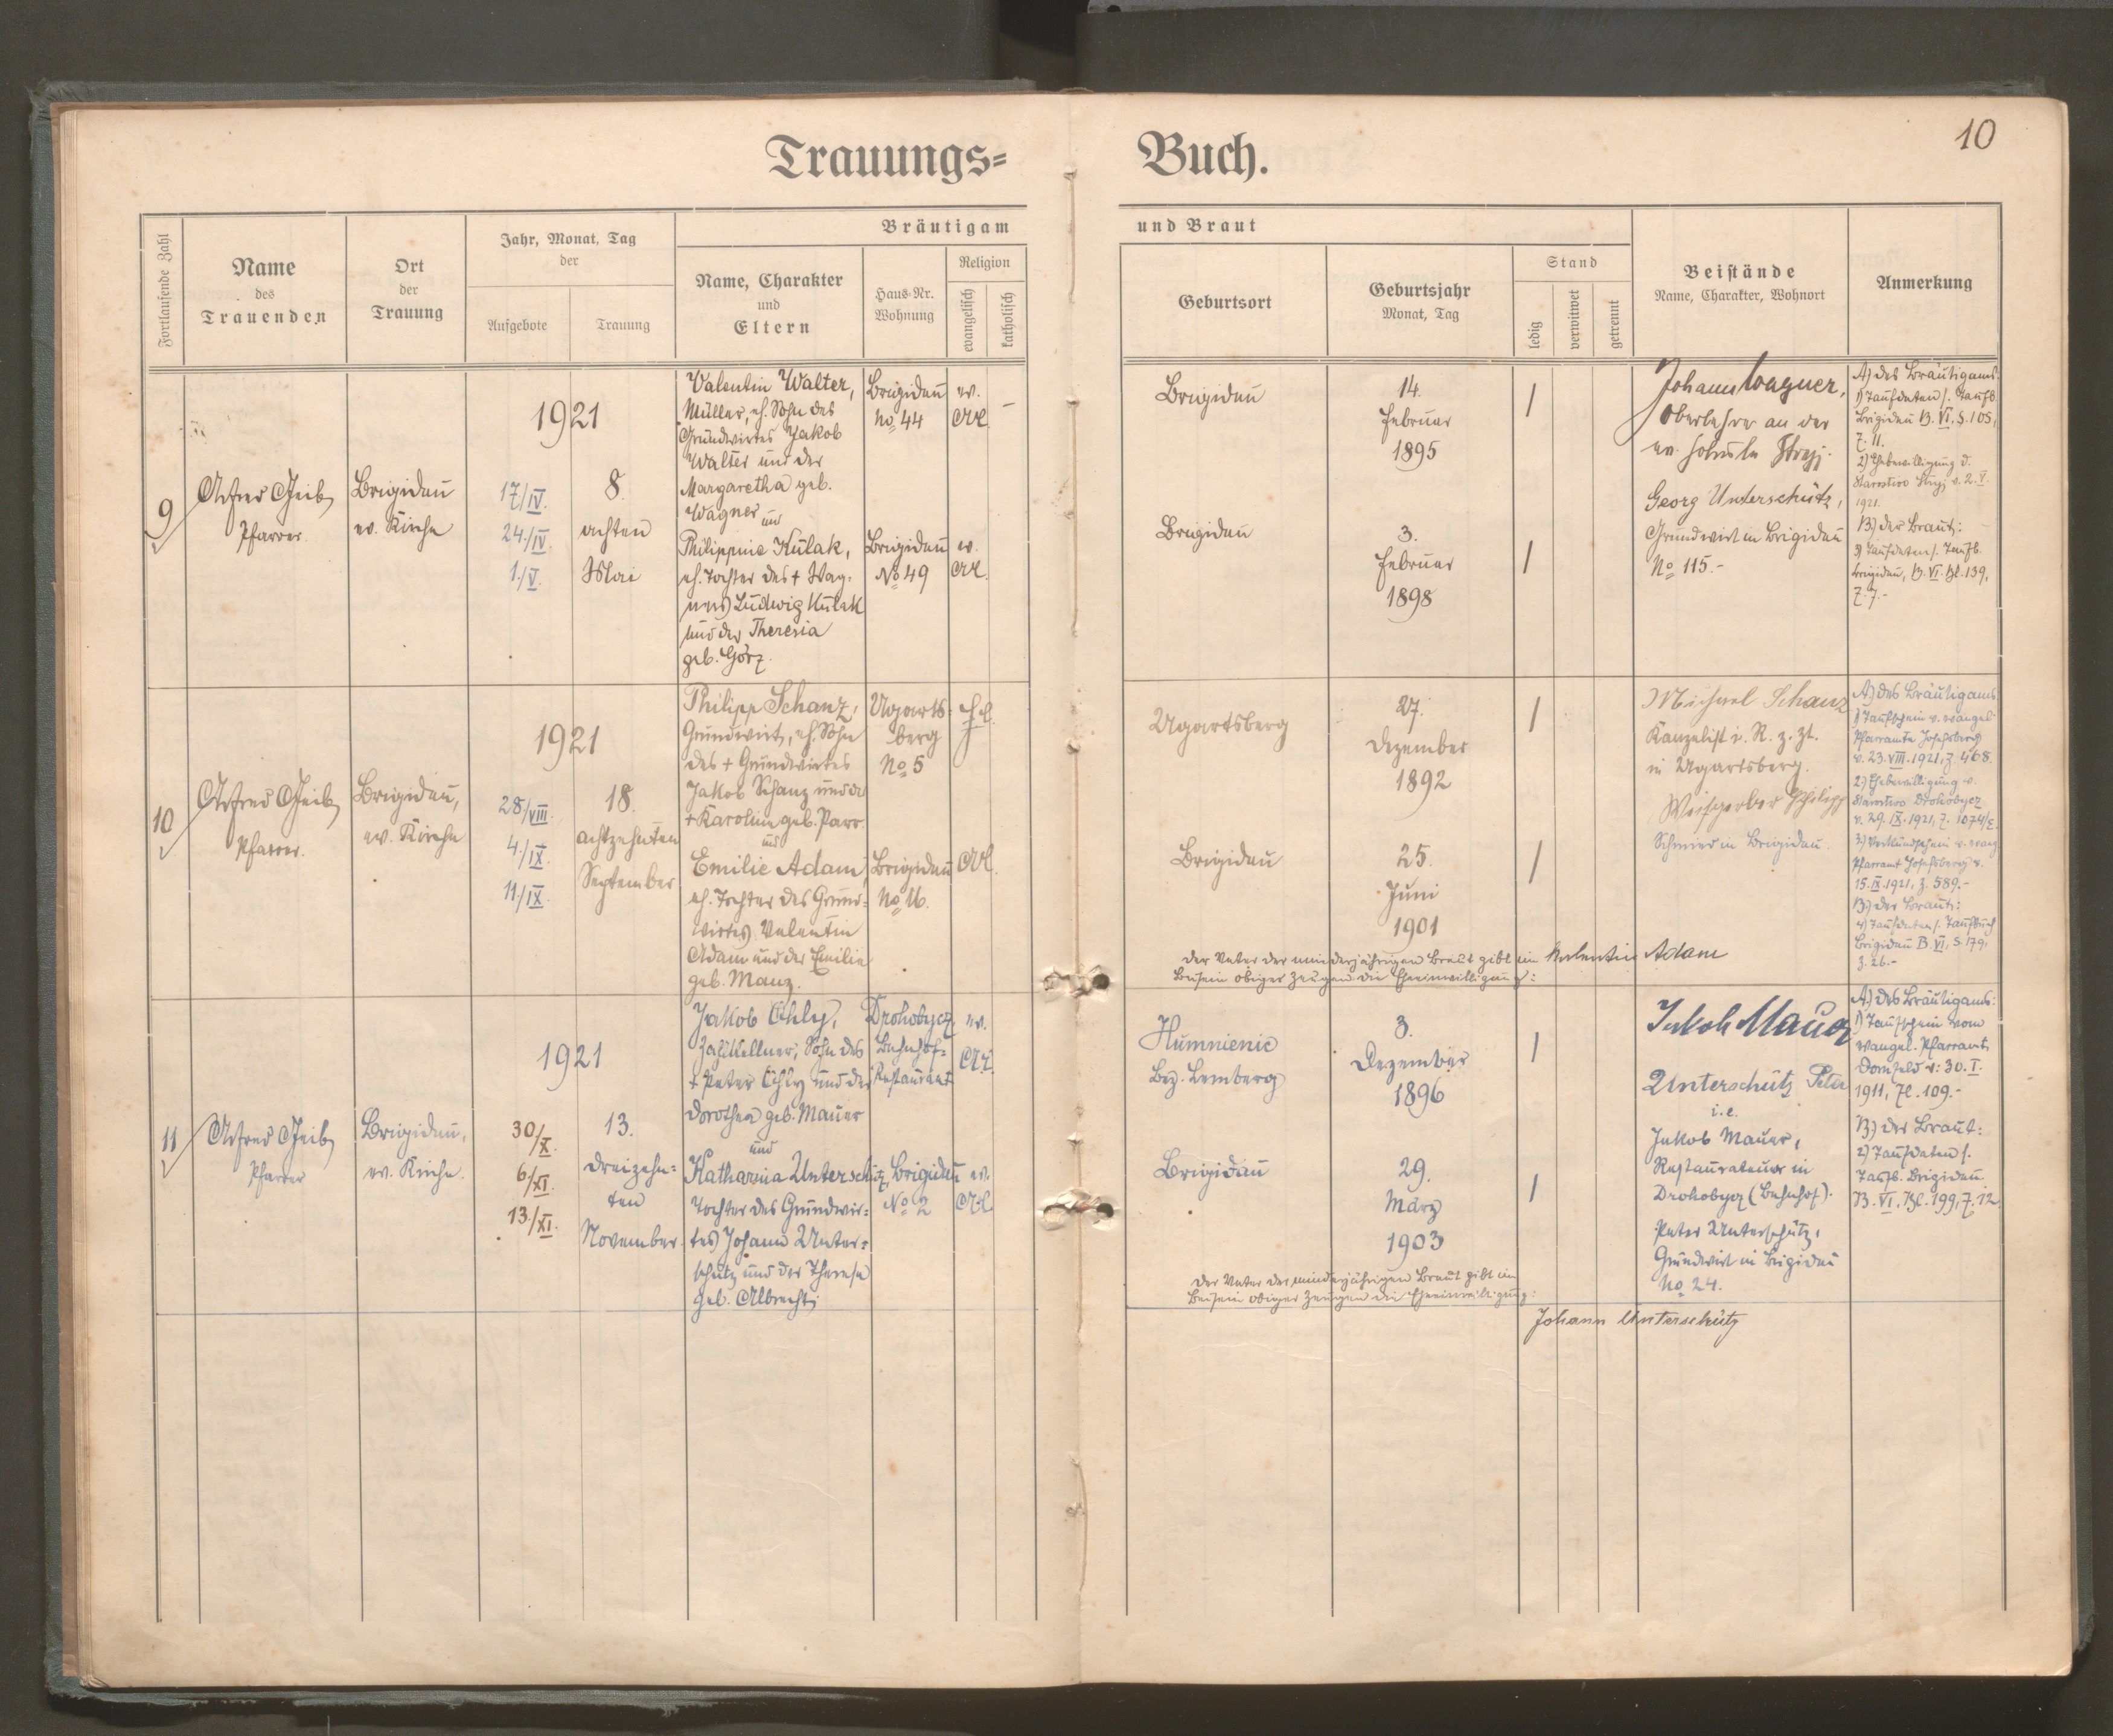 10
Trauungs=
Buch.
Fortlaufende Zahl
Name
des
Trauenden
Ort
der
Trauung
Jahr, Monat, Tag
der
Aufgebote
Trauung
Bräutigam
Name, Charakter
und
Eltern
Haus-Nr.
Wohnung
Religion
evangelisch
katholisch
und Braut
Geburtsort
Geburtsjahr
Monat, Tag
Stand
ledig
verwitwet
getrennt
Beistände
Name, Charakter, Wohnort
Anmerkung
9
Pfarrer.
Brigidau
ev. Kirche
1921
17/IV.
24./IV.
1./V.
8.
achten
Mai
Valentin Walter,
Müller, eh. Sohn des
Grundwirtes Jakob
Walter und der
Margaretha geb.
Wagner
und
Philippine Kulak,
eh. Tochter des + Wag-
ners Ludwig Kulak
und der Theresia
geb. Görz.
Brigidau
No 44
ev.
A.C.
Brigidau
No 49
ev.
A.C.
Brigidau
14.
Februar
1895
Brigidau
3.
Februar
1898
Johann Wagner,
Oberlehrer an der
ev. Schule Stryj.
Georg Unterschütz,
Grundwirt in Brigidau
No 115.-
A) des Bräutigams:
1) Taufdaten s. Taufb.
Brigidau B. VI, S. 105,
Z. 11.
2) Ehebewilligung d.
Starostwo Stryj v. 2. V.
1921.
B.) der Braut:
3) Taufdaten s. Taufb.
Brigidau, B. VI. Bl. 139,
Z. 7.-
10
Pfarrer.
Brigidau,
ev. Kirche
1921
28/VIII.
4./IX.
11./IX.
18.
achtzehnten
September
Philipp Schanz,
Grundwirt, eh. Sohn
des + Grundwirtes
Jakob Schanz und der
+ Karoline geb. Parr.
und
Emilie Adam,
eh. Tochter des Grund=
wirtes Valentin
Adam und der Emilie
geb. Manz.
Ugarts-
berg
No 5
Brigidau
No 16.
A.C.
Ugartsberg
27.
Dezember
1892
Brigidau
25.
Juni
1901
Michael Schanz
Kanzelist i. R. z. Zt.
in Ugartsberg.
Weißgerber Philipp
Schmied in Brigidau.
A) des Bräutigams
1) Taufschein v. evangel.
Pfarramte Josefsberg
v. 23. VIII. 1921, Z. 468.
2) Ehebewilligung v.
Starostwo Drohobycz
v. 29. IX. 1921, Z. 1074/E.
3) Verkündschein v. evang.
Pfarramt Josefsberg v.
15. IX. 1921, Z. 589.-
B.) der Braut:
4) Taufdaten s. Taufbuch
Brigidau B. VI, S. 179,
Z. 26.-
Der Vater der minderjährigen Braut gibt im
Beisein obiger Zeugen die Eheeinwilligung:
Valentin Adam
11
Pfarrer
Brigidau,
ev. Kirche.
1921
30/X.
6/XI.
13./XI.
13.
dreizehn=
ten
November.
Jakob Ohly,
Zahlkellner, Sohn des
+ Peter Ohly und der
Dorothea geb. Mauer
und
Katharina Unterschütz,
Tochter des Grundwir=
tes Johann Unter=
schütz und der Therese
geb. Albrecht
Drohobycz
Bahnhof=
Restaurant
ev.
A.C.
Brigidau
No 2
ev.
A.C.
Humnienie
Bez. Lemberg
3.
Dezember
1896
Brigidau
29.
März
1903
Jakob Mauer
Unterschütz Peter
i.e.
Jakob Mauer,
Restaurateur in
Drohobycz (Bahnhof).
Peter Unterschütz,
Grundwirt in Brigidau
No 24.
A.) des Bräutigams:
1) Taufschein vom
evangel. Pfarramt
Dornfeld v. 30. I.
1911, Zl. 109.-
B.) der Braut:
2) Taufdaten s.
Taufb. Brigidau
B. VI, Bl. 199, Z. 12.
Der Vater der minderjährigen Braut gibt im
Beisein obiger Zeugen die Eheeinwilligung:
Johann Unterschütz